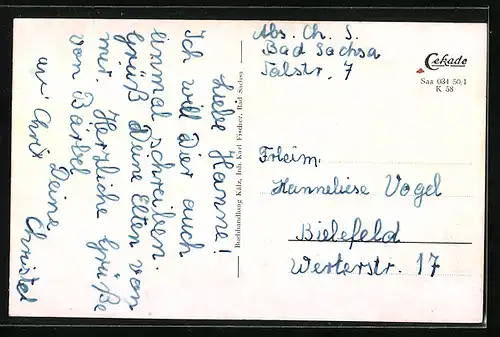 Liebe Hanne!
Ich will Dier auch
einmal schreiben.
Grüß Deine Elten von
mir. Herzliche Grüße
von Bärbel
an Chris Deine
Christel
Buchhandlung Kälz, Inh. Karl Fischer, Bad Sachsa
Abs. Ch. S.
Bad Sachsa
Talstr. 7
Cekade
Saa 034 50/1
K 58
Frleim.
Hanneliese Vogel
Bielefeld
Werterstr. 17